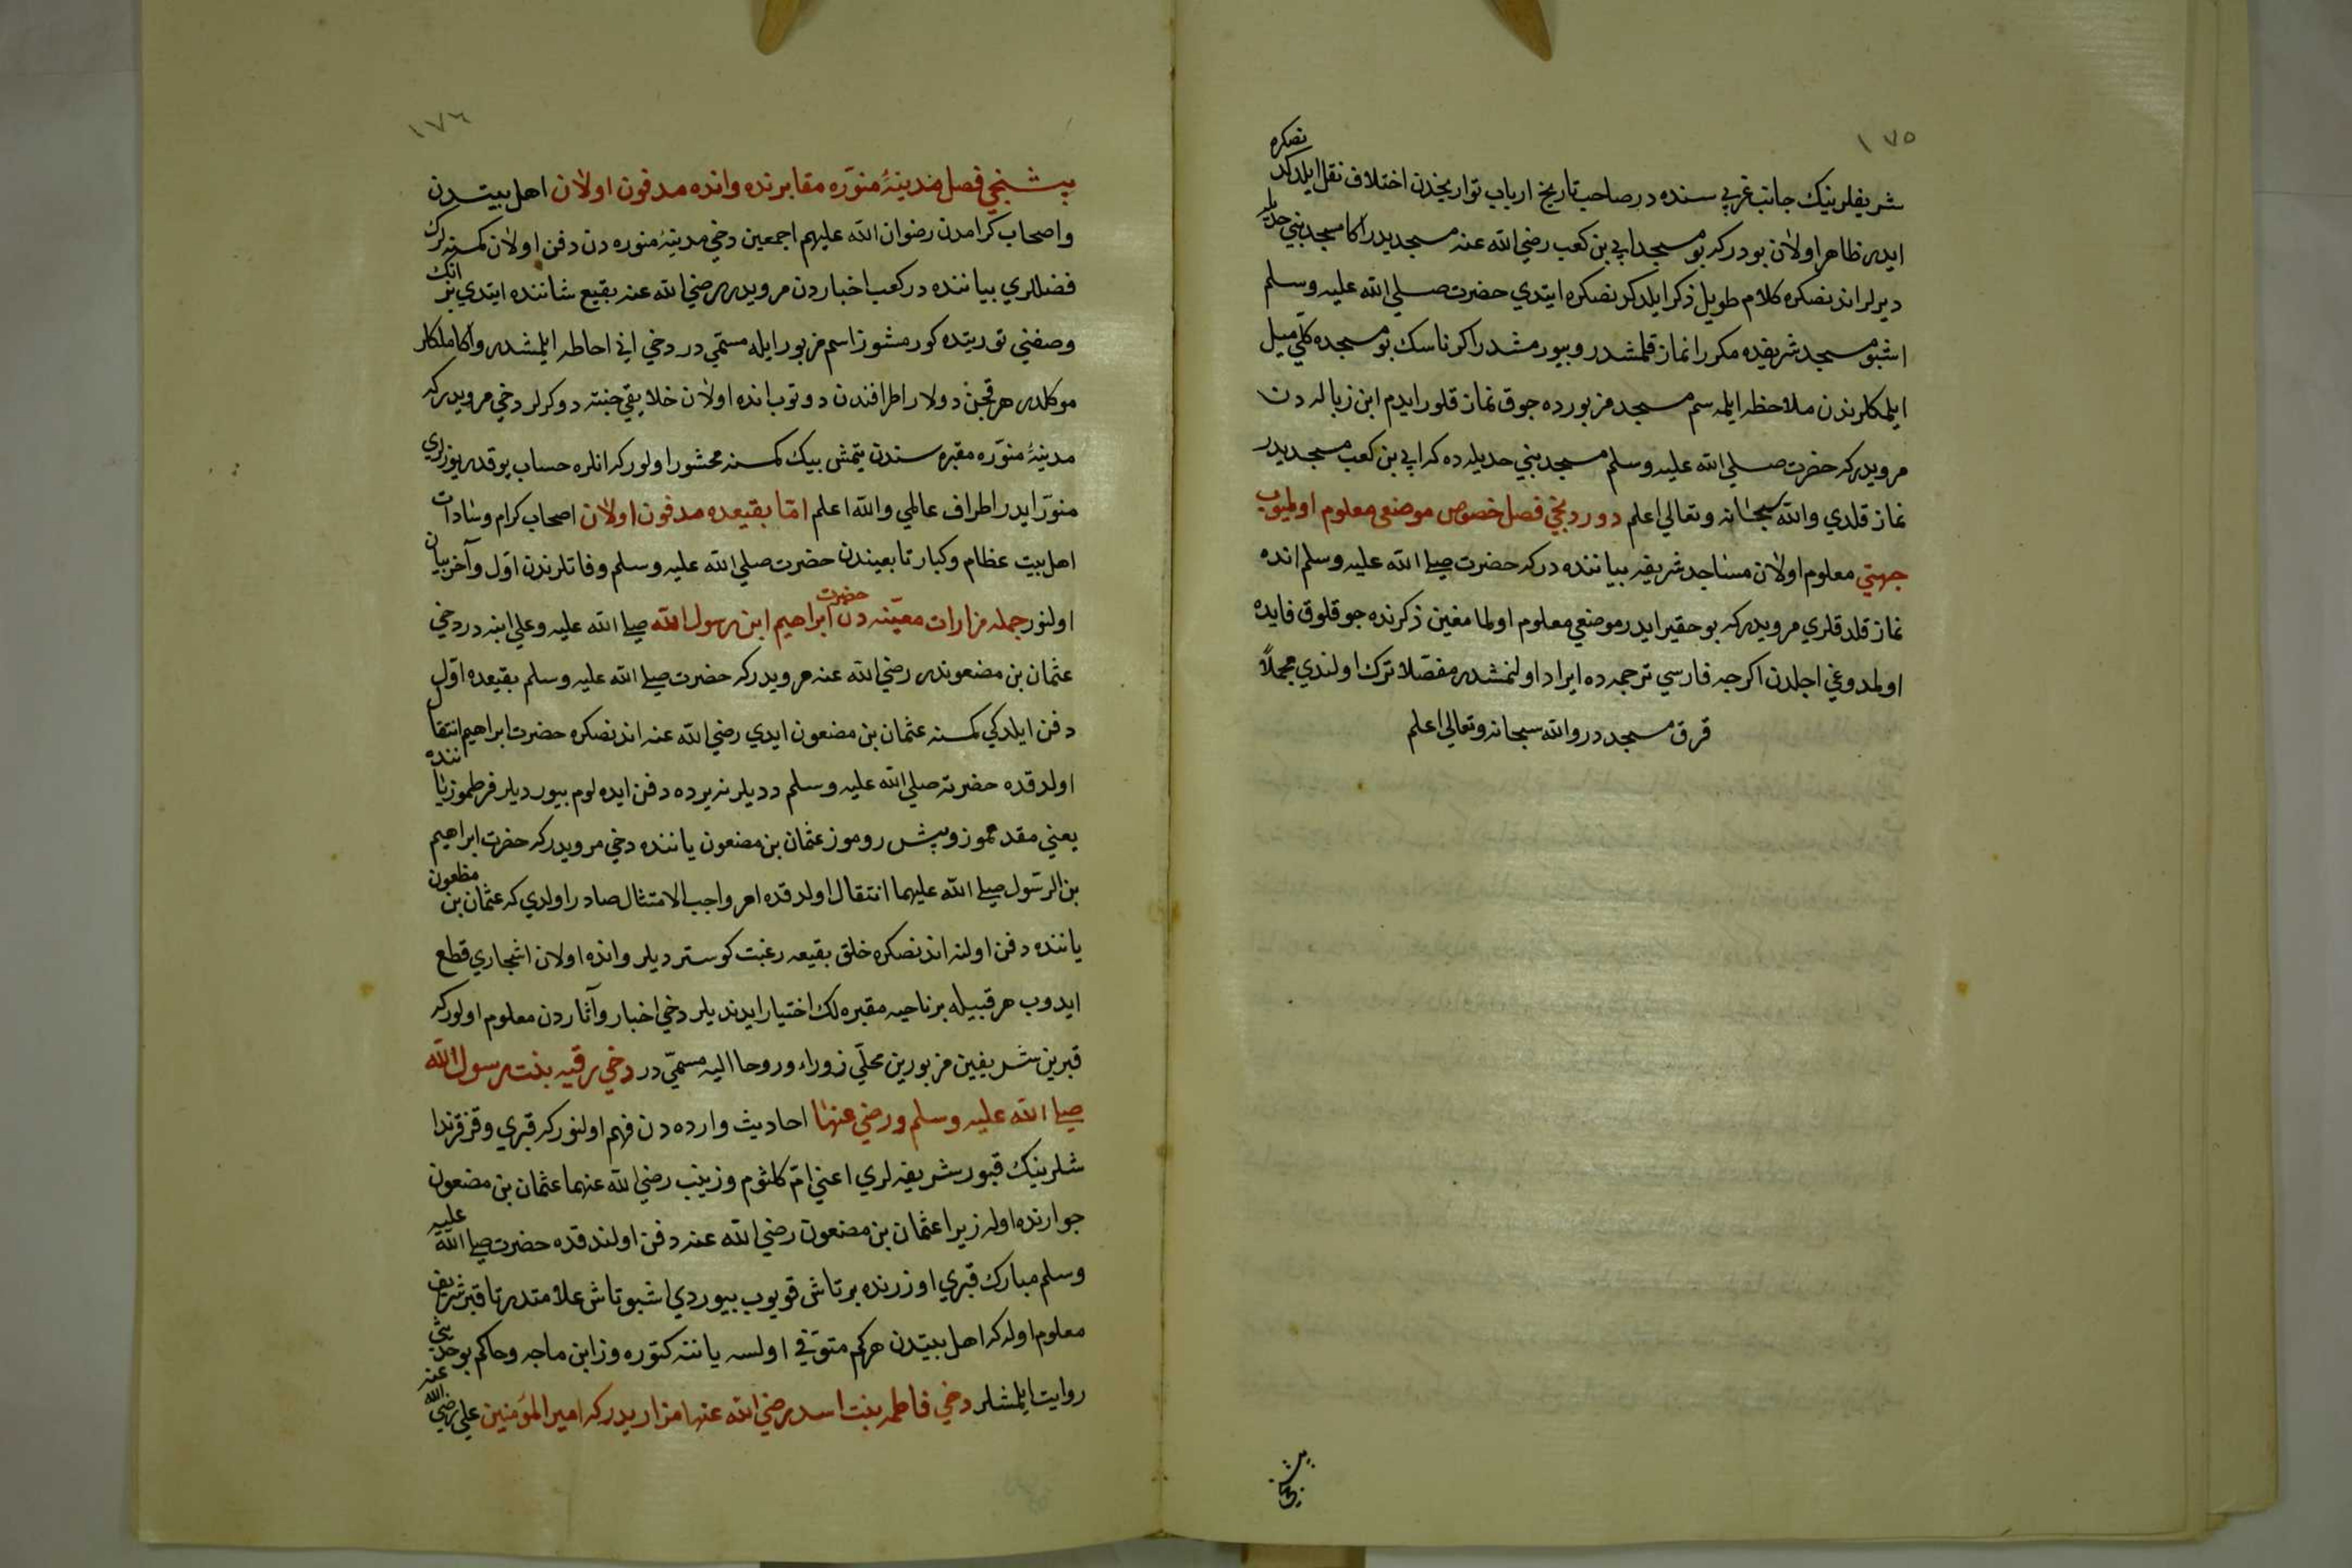 ١٧٥
شريفلرينيك جانب غربي سنده در صاحب تاريخ ارباب تواريخدن اختلاف نقل ايلدكدنصكره
ايدر ظاهر اولان بودركه بو مسجد ابي بن كعب رضي الله عنه مسجديدر اكا مسجد بني حديله
ديرلر اندنصكره كلام طويل ذكر ايلدكدنصكره ايتدي حضرت صلي الله عليه وسلم
اشبو مسجد شريفده مكررا نماز قلمشدر وبيورمشدر اكر ناسك بو مسجده كلي ميل
ايلمكلرندن ملاحظه ايلمه سم مسجد مزبورده جوق نماز قلور ايدم ابن زباله دن
مرويدركه حضرت صلي الله عليه وسلم مسجد بني حديله ده كه ابي بن كعب مسجديدر
نماز قلدي والله سبحانه وتعالي اعلم دوردنجي فصل خصوص موضعي معلوم اولميوب
جهتي معلوم اولان مساجد شريفه بياننده دركه حضرت صلي الله عليه وسلم انده
نماز قلدقلري مرويدركه بو حقير ايدر موضعي معلوم اولمامغين ذكرنده جوقلوق فايده
اولمدوغي اجلدن اكرجه فارسي ترجمه ده ايراد اولنمشدر مفصلا ترك اولندي مجملاً
قرق مسجددر والله سبحانه وتعالي اعلم
بشنجي
١٧٦
بشنجي فصل مدينۀ منوّره مقابرنده وانده مدفون اولان اهل بيتدن
واصحاب كرامدن رضوان الله عليهم اجمعين دخي مدينۀ منوره دن دفن اولان كمسنه لرك
فضللري بياننده در كعب اخباردن مرويدر رضي الله عنه بقيع شاننده ايتدي بز انك
وصفني توريتده كورمشوز اسم مزبور ايله مسمي در دخي اني احاطه ايلمشدر واكا ملكلر
موكلدر هر قجن دولار اطرافندن دوتوب انده اولان خلايقي جنته دوكرلر دخي مرويدركه
مدينۀ منوّره مقبره سندن يتمش بيك كمسنه محشور اولوركه انلره حساب يوقدر يوزلري
منوّر ايدر اطراف عالمي والله اعلم امّا بقيعده مدفون اولان اصحاب كرام وسادات
اهل بيت عظام وكبار تابعيندن حضرت صلي الله عليه وسلم وفاتلرندن اوّل وآخر بيان
اولنور جمله مزارات معيّنه دن حضرت ابراهيم ابن رسول الله صلي الله عليه وعلي ابنه در دخي
عثمان بن مضعوندر رضي الله عنه مرويدركه حضرت صلي الله عليه وسلم بقيعده اوّل
دفن ايلدكي كمسنه عثمان بن مضعون ايدي رضي الله عنه اندنصكره حضرت ابراهيم انتقال
اولدقده حضرته صلي الله عليه وسلم دديلر نه يرده دفن ايده لوم بيورديلر فرطموز ياننده
يعني مقدمموز وپيش روموز عثمان بن مضعون ياننده دخي مرويدركه حضرت ابراهيم
بن الرسول صلي الله عليهما انتقال اولدقده امر واجب الامتثال صادر اولدي كه عثمان بن مظعون
ياننده دفن اولنه اندنصكره خلق بقيعه رغبت كوستردیلر وانده اولان اشجاري قطع
ايدوب هر قبيله بر ناحيه مقبره لك اختيار ايدنديلر دخي اخبار وآثاردن معلوم اولوركه
قبرين شريفين مزبورين محلّي زوراء وروحا اليه مسمّي در دخي رقيه بنت رسول الله
صلي الله عليه وسلم ورضي عنها احاديث وارده دن فهم اولنوركه قبري وقزقرندا
شلرينيك قبور شريفه لري اعني امّ كلثوم وزينب رضي الله عنهما عثمان بن مضعون
جوارنده اوله زيرا عثمان بن مضعون رضي الله عنه دفن اولندقده حضرت صلي الله عليه
وسلم مبارك قبري اوزرنده بر تاش قويوب بيوردي اشبو تاش علامتدر تا قبر شريف
معلوم اوله كه اهل بيتدن هر كم متوّفي اولسه ياننه كتوره وز ابن ماجه وحاكم بو حديثي
روايت ايلمشلر دخي فاطمه بنت اسد رضي الله عنها مزاريدركه امير المؤمنين علي رضي الله عنه